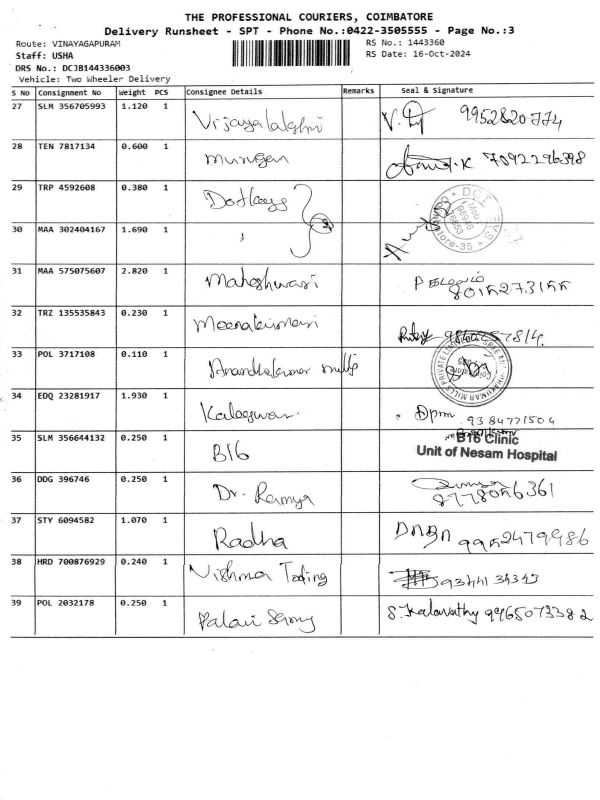 THE PROFESSIONAL COURIERS, COIMBATORE
Delivery Runsheet - SPT - Phone No.:0422-3505555 - Page No.:3
Route: VINAYAGAPURAM
RS No.: 1443360
Staff: USHA
RS Date: 16-Oct-2024
DRS No.: DCJB144336003
Vehicle: Two Wheeler Delivery
S No Consignment No Weight PCS Consignee Details Remarks Seal & Signature
27 SLM 356705993 1.120 1 Vijayalakshmi 9952820774
28 TEN 7817134 0.600 1 murugan 7092296398
29 TRP 4592608 0.380 1
30 MAA 302404167 1.690 1
31 MAA 575075607 2.820 1 Maheshwari
32 TRZ 135535843 0.230 1 Meenakumari
33 POL 3717108 0.110 1 Anandhakumar mills
34 EDQ 23281917 1.930 1 9384771504
35 SLM 356644132 0.250 1 B16 B16 Clinic
Unit of Nesam Hospital
36 DDG 396746 0.250 1 Dr. Ramya
37 STY 6094582 1.070 1 Radha
38 HRD 700876929 0.240 1
39 POL 2032178 0.250 1 S. Kalavathy 9965073382